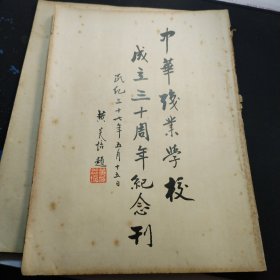 中華職業學校
成立三十周年紀念刊
民紀三十七年五月十五日
黄炎培題